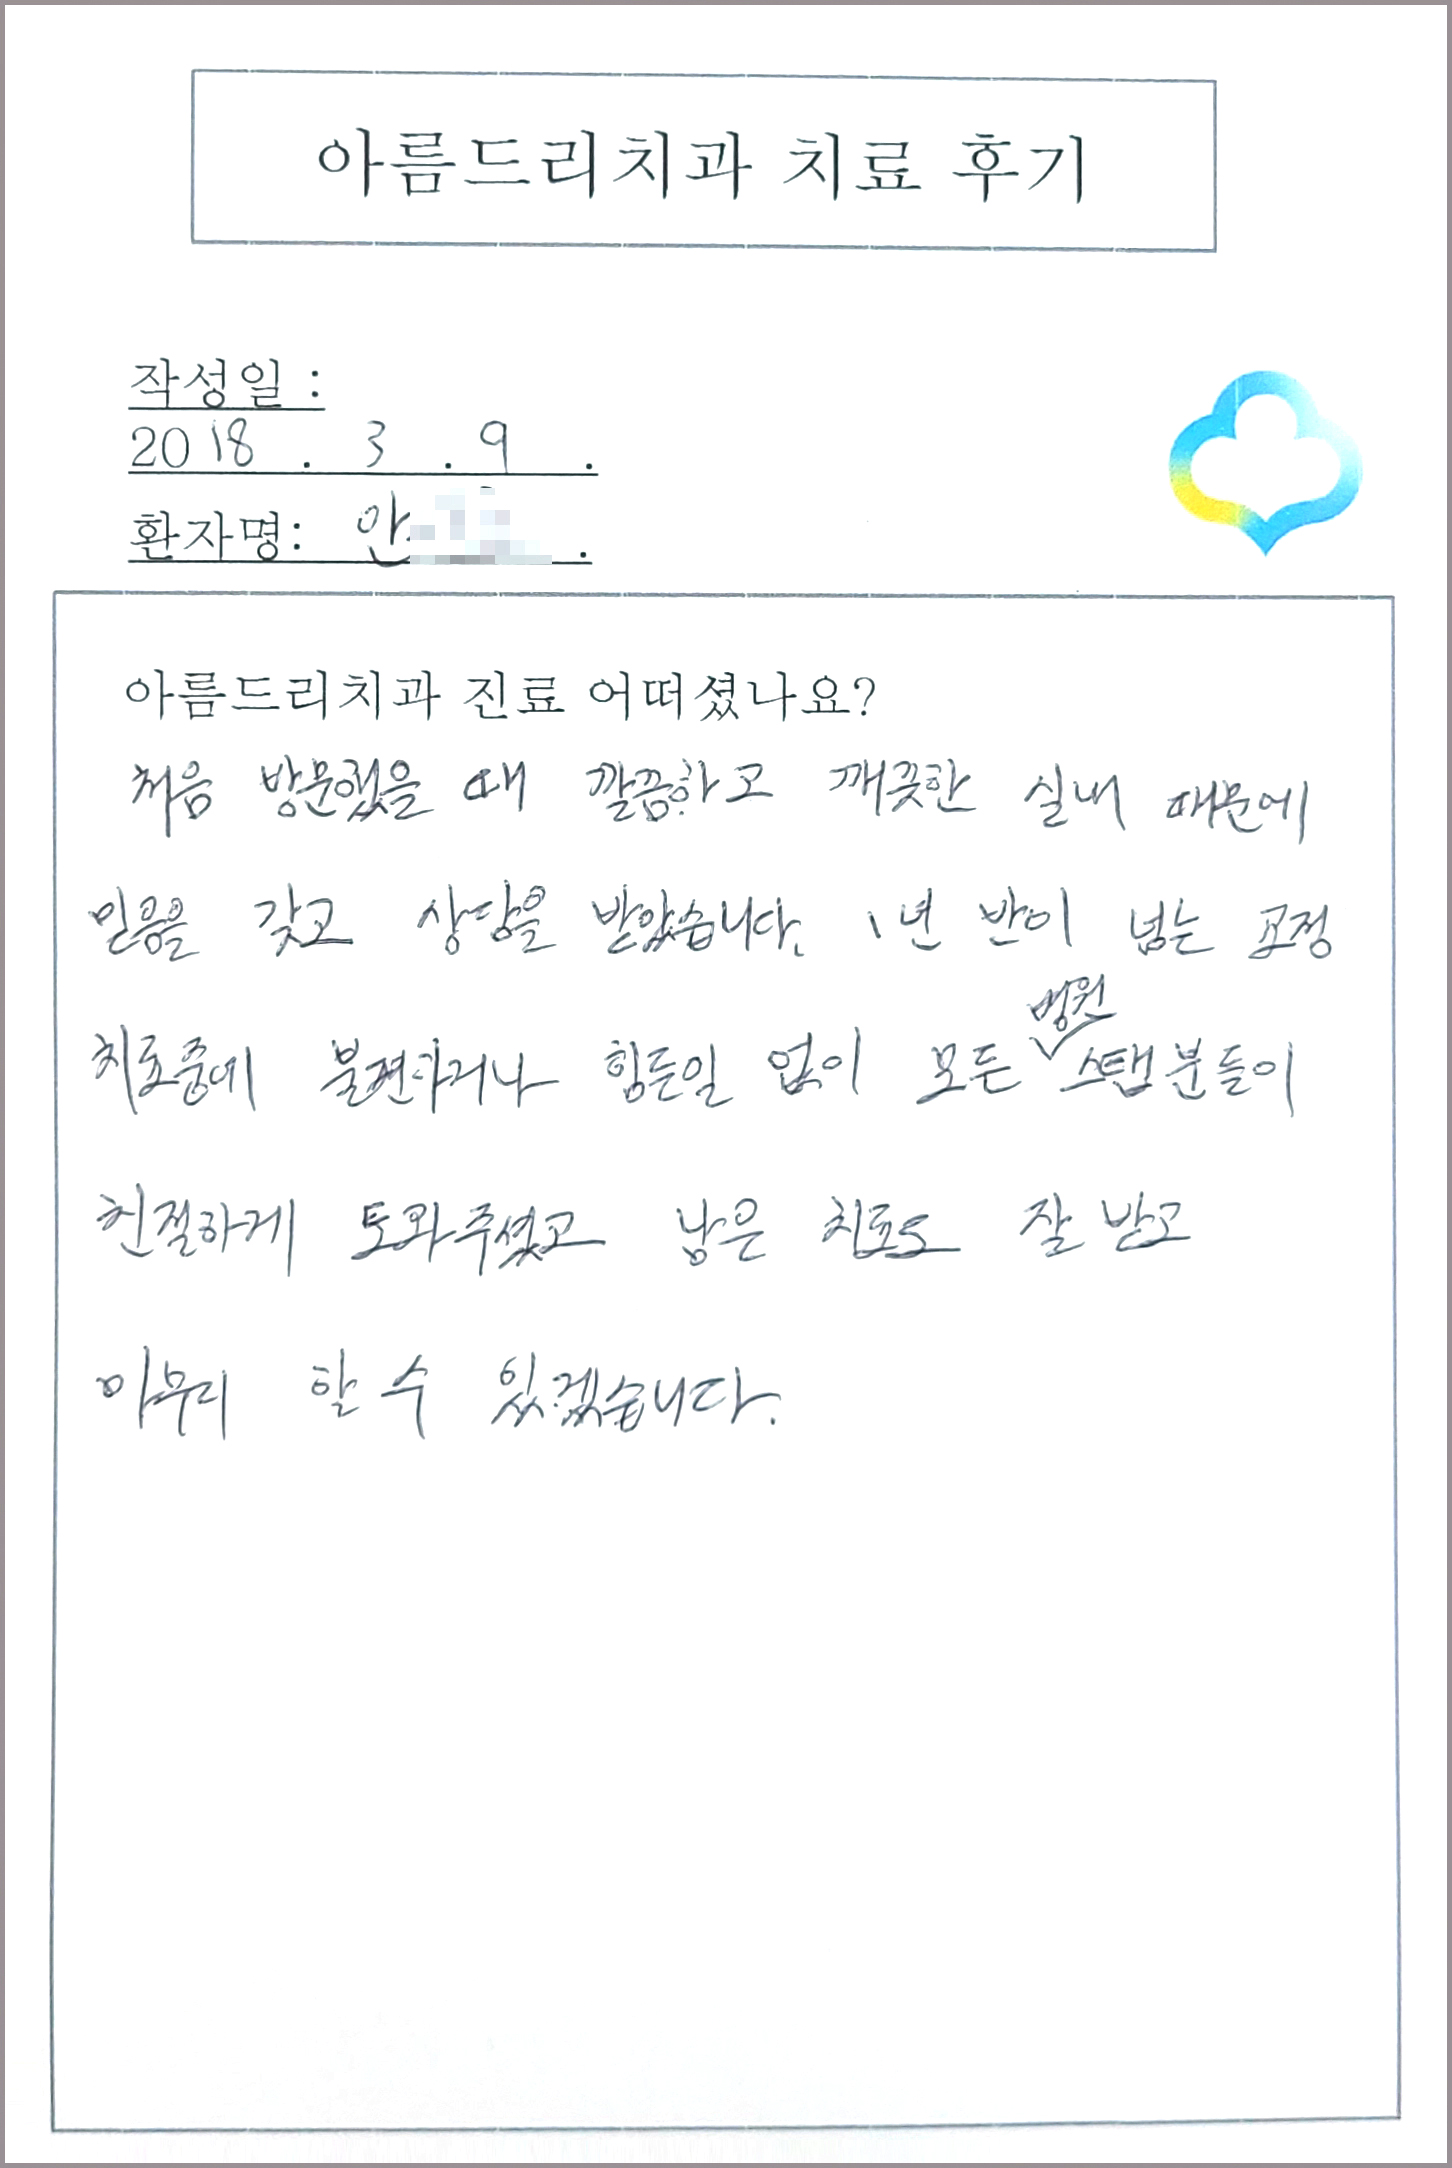 아름드리치과 치료 후기
작성일 :
2018 . 3 . 9 .
환자명: 안 .
아름드리치과 진료 어떠셨나요?
처음 방문했을 때 깔끔하고 깨끗한 실내 때문에
믿음을 갖고 상담을 받았습니다. 1년 반이 넘는 교정
치료중에 불편하거나 힘든일 없이 모든 병원 스탭분들이
친절하게 도와주셨고 남은 치료도 잘 받고
마무리 할 수 있겠습니다.